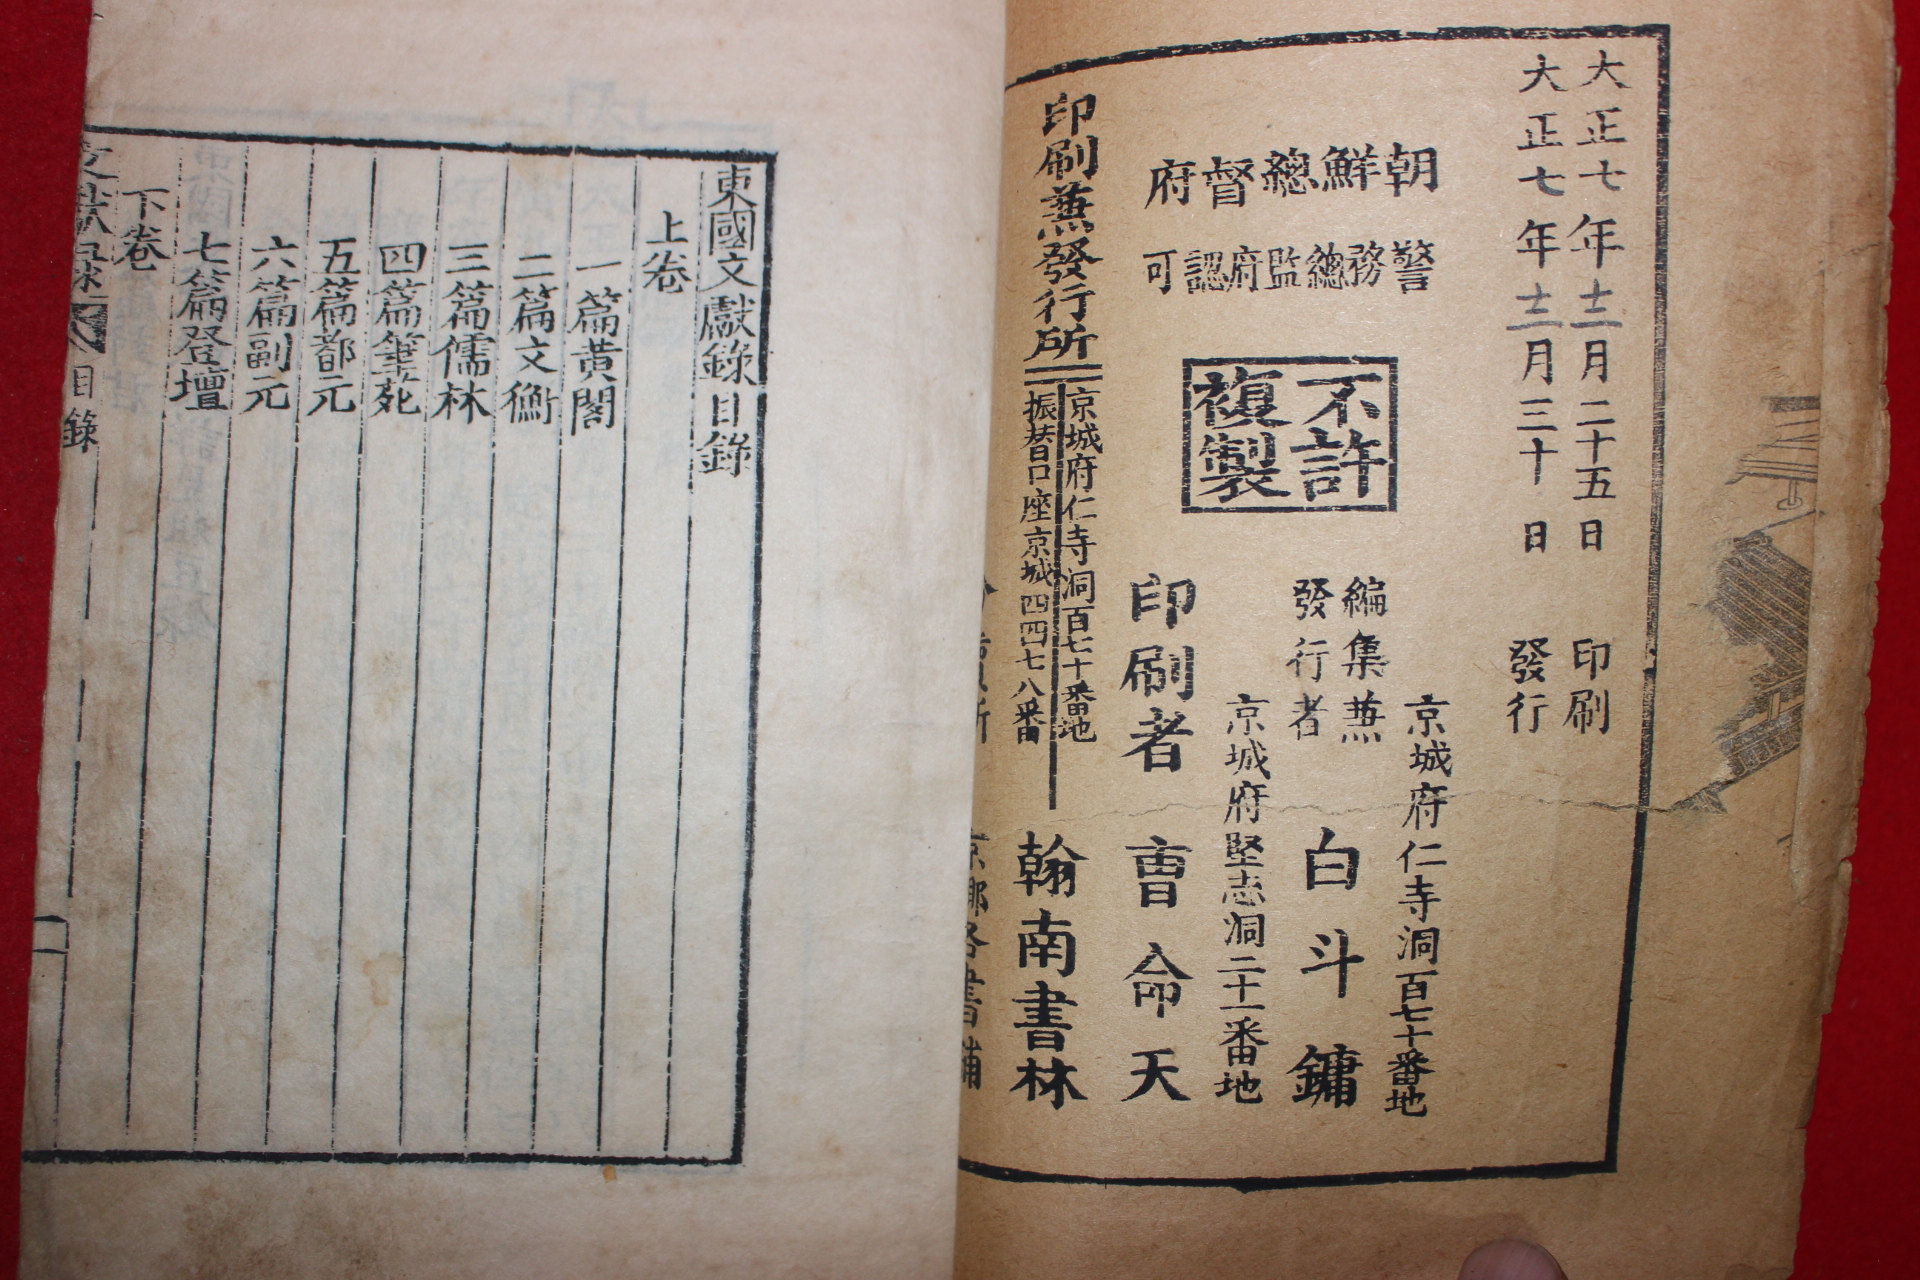 大正七年十二月二十五日 印刷
大正七年十二月三十日 發行
朝鮮總督府
警務總監府認可
不許
複製
京城府仁寺洞百七十番地
編集兼
發行者
白斗鏞
京城府堅志洞二十一番地
印刷者 曹命天
印刷兼發行所
京城府仁寺洞百七十番地
振替口座京城四四七八番
翰南書林
東國文獻錄目錄
上卷
一篇黃閣
二篇文衡
三篇儒林
四篇筆苑
五篇都元
六篇副元
七篇登壇
下卷
目錄